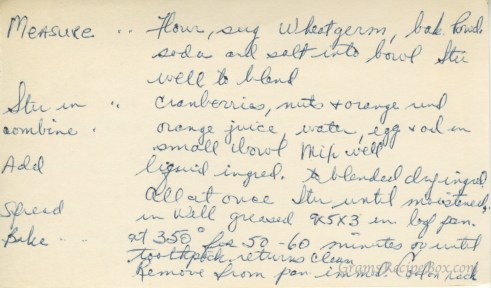 MEASURE .. Flour, sug Wheatgerm, bak. Powd.
soda and salt into bowl Stir
well to blend
Stir in .. Cranberries, nuts + orange rind
combine . orange juice, water, egg + oil in
small bowl Mix well
Add liquid ingred. to blended dry ingred.
all at once Stir until moistened.
Spread in Well greased 9x5x3 in loaf pan.
Bake .. at 350° for 50-60 minutes or until
toothpick returns clean
Remove from pan immed. Cool on rack
GramsRecipeBox.com